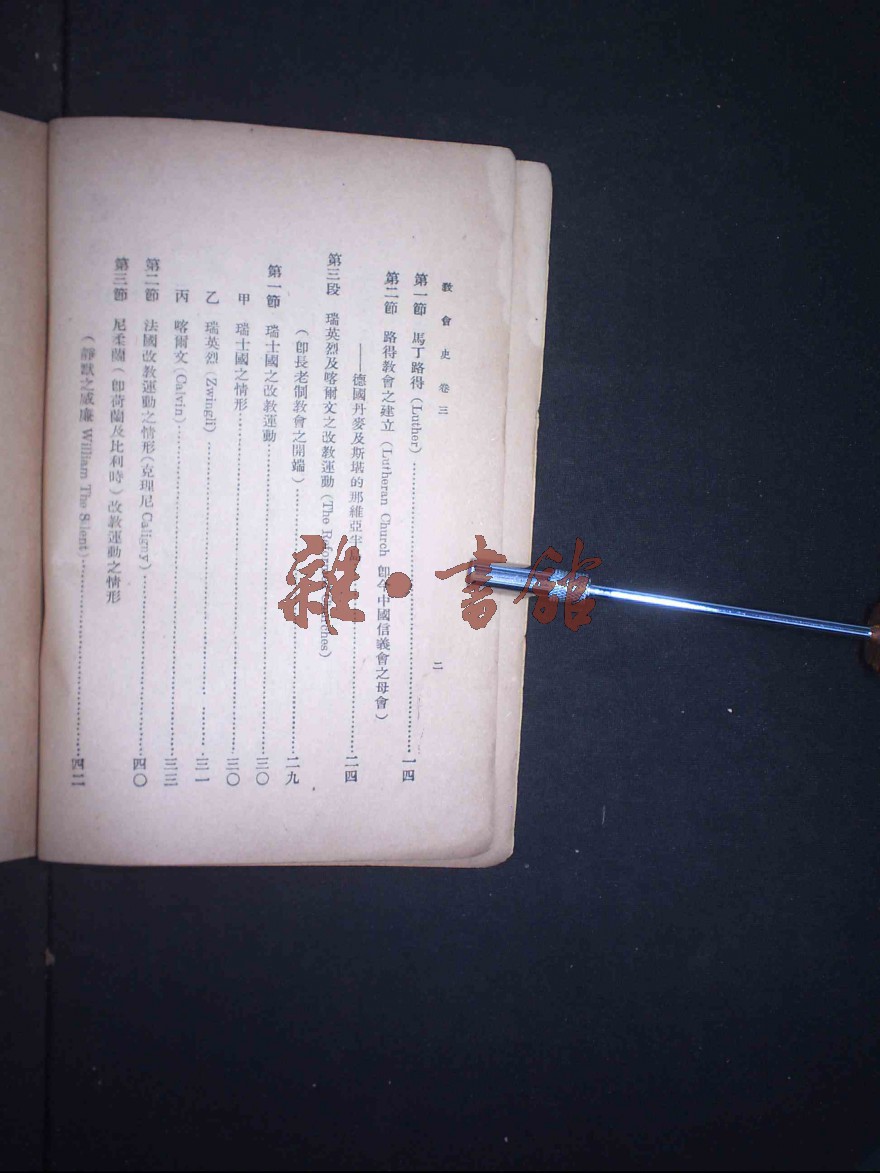 教會史 卷三
二
第一節 馬丁路得(Luther)……一四
第二節 路得教會之建立(Lutheran Church 即今中國信義會之母會)
——德國丹麥及斯堪的那維亞半島……二四
第三段 瑞英烈及喀爾文之改教運動(The Reformed Churches)
(即長老制教會之開端)……二九
第一節 瑞士國之改教運動……三〇
甲 瑞士國之情形……三〇
乙 瑞英烈(Zwingli)……三一
丙 喀爾文(Calvin)……三三
第二節 法國改教運動之情形(克理尼 Caligny)……四〇
第三節 尼柔蘭(即荷蘭及比利時)改教運動之情形
(靜默之威廉 William The Silent)……四二
雜·書館